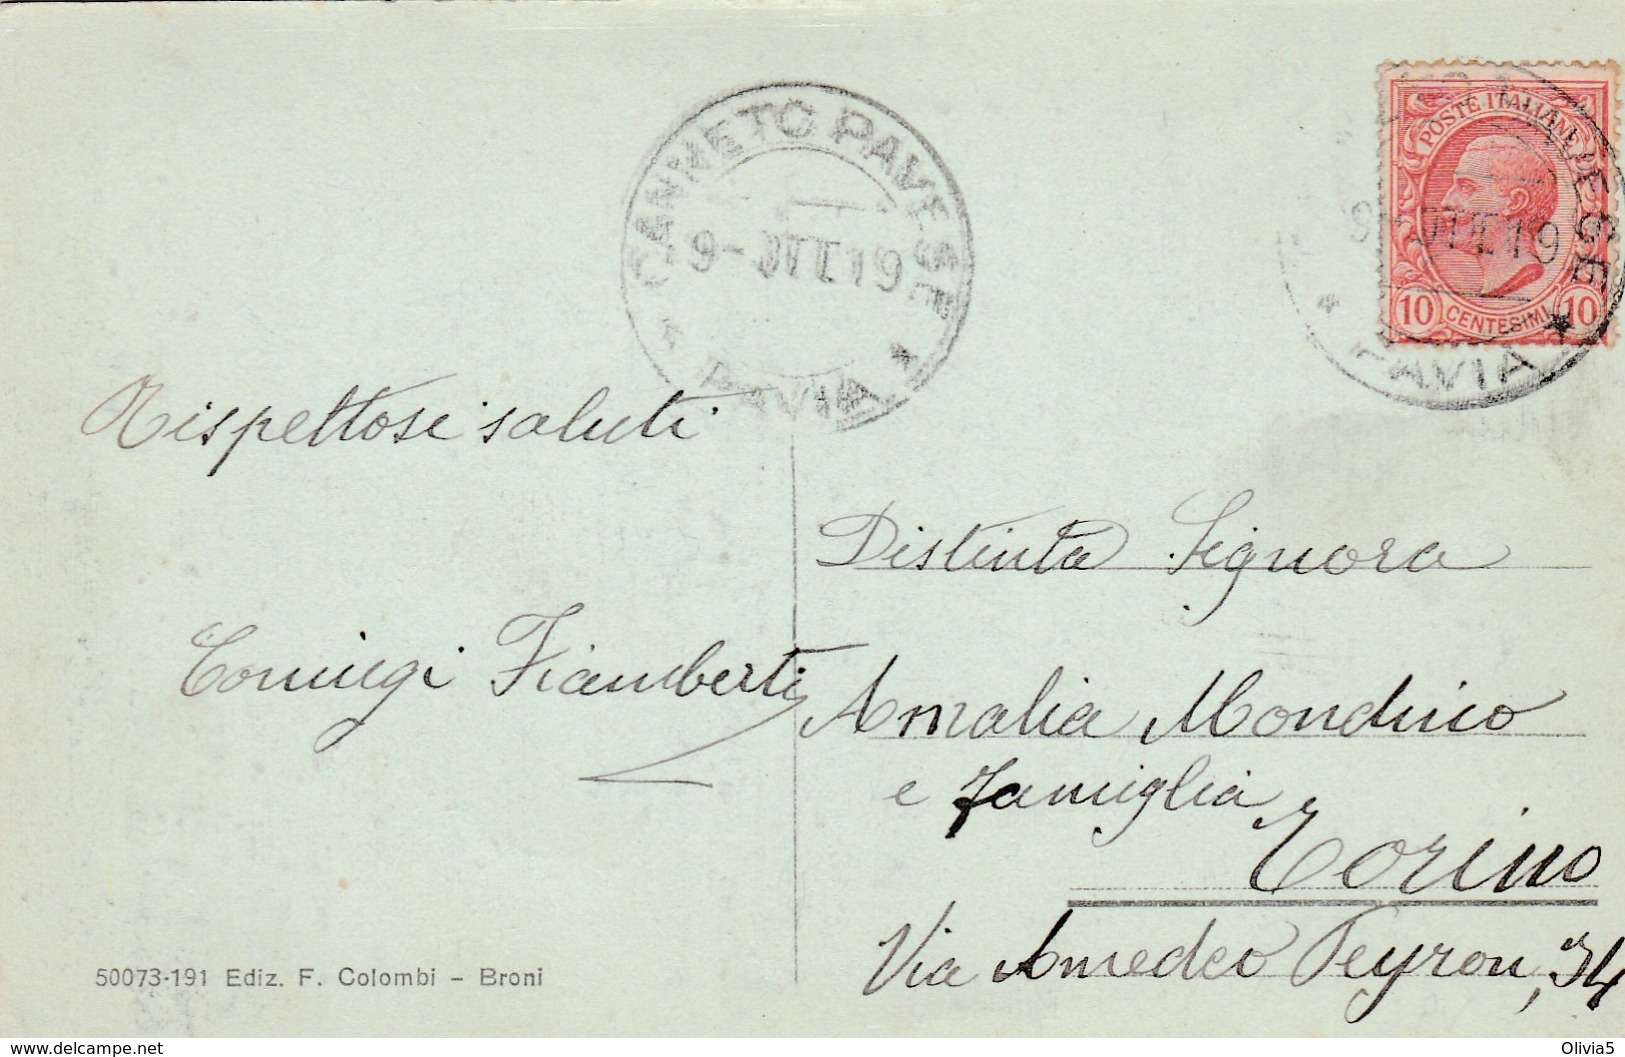 CANNETO PAVESE
9-    19
PAVIA
POSTE ITALIANE
10 CENTESIMI 10
ESE
19
PAVIA
Rispettosi saluti
Coniugi Fiamberti
Distinta Signora
Amalia Mondino
e famiglia
Torino
Via Amedeo Peyron, 34
50073-191 Ediz. F. Colombi - Broni
www.delcampe.net
Olivia5